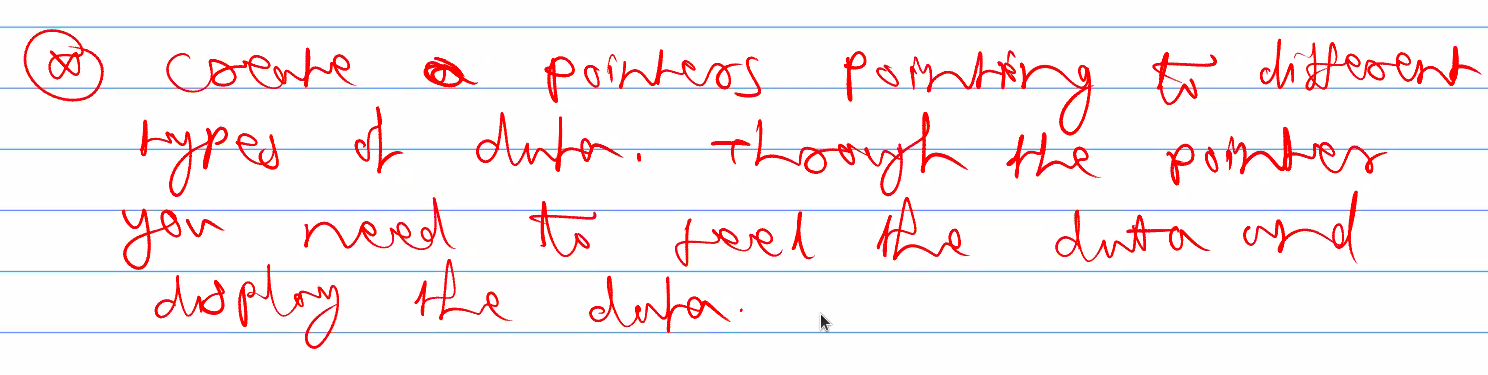 Create pointers pointing to different
types of data. Through the pointer
you need to feel the data and
display the data.